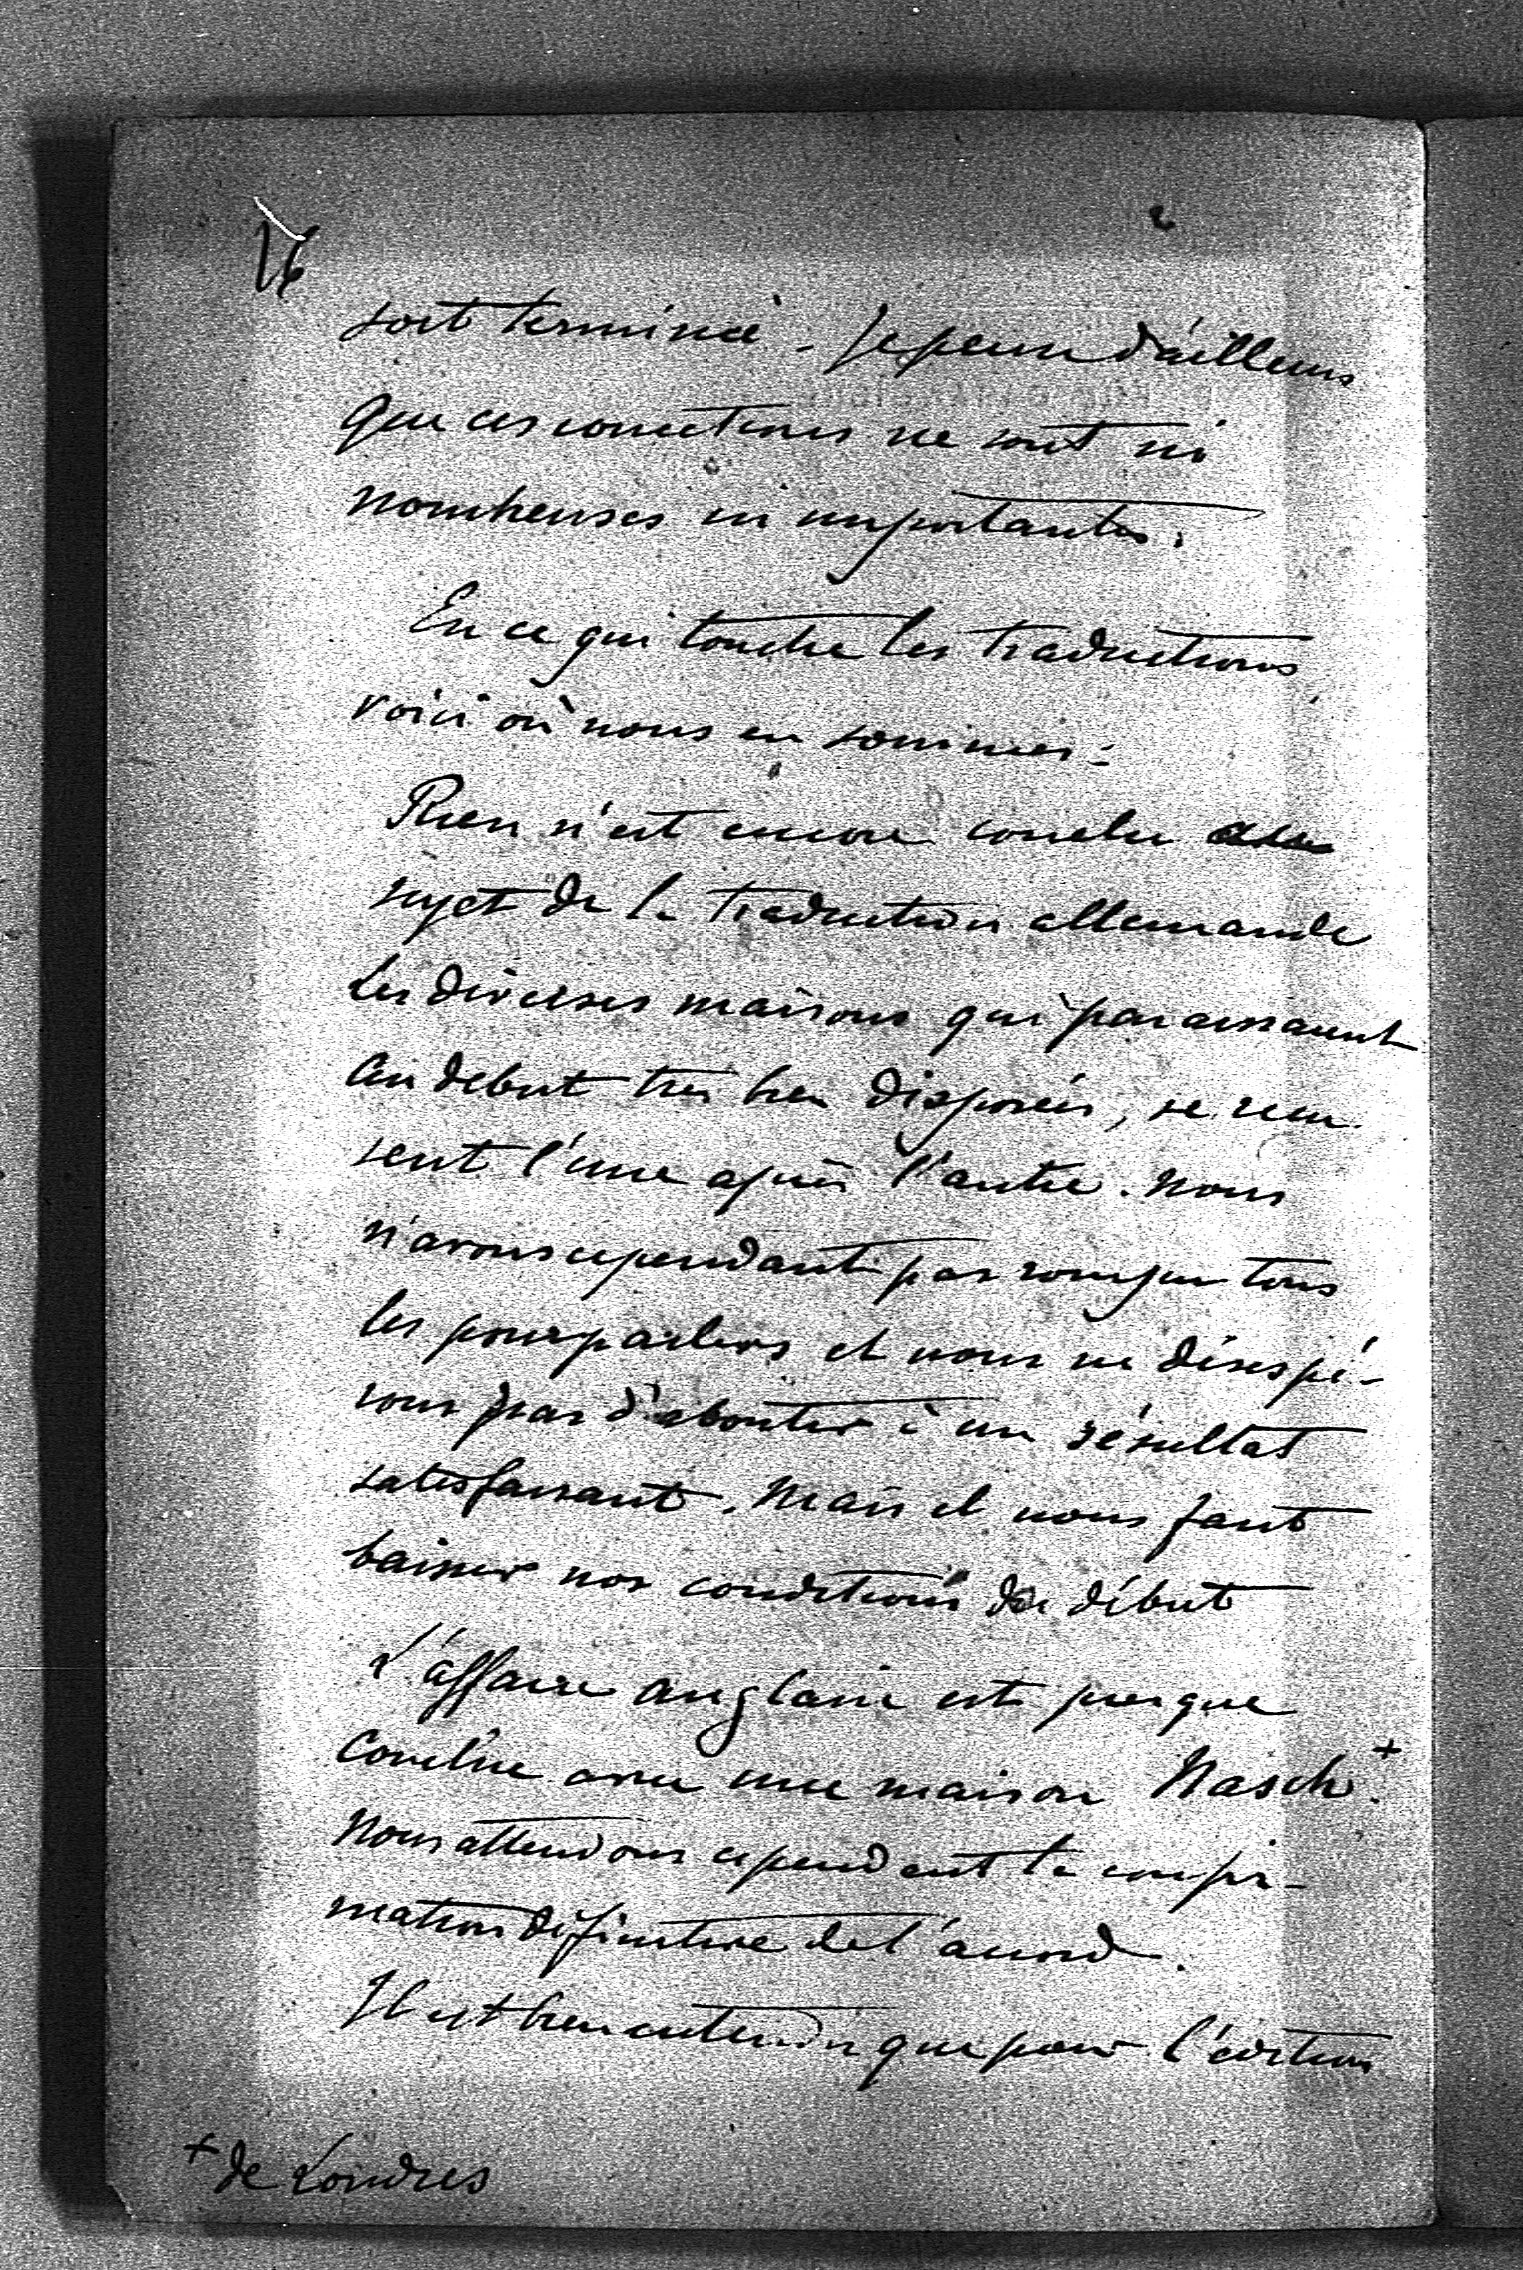 16
soit terminé. Je pense d'ailleurs
que ces corrections ne sont ni
nombreuses ni importantes.
En ce qui touche les traductions,
voici où nous en sommes :
Rien n'est encore conclu au
sujet de la traduction allemande
Les diverses maisons qui paraissaient
au debut très bien disposées, se recu-
sent l'une après l'autre. Nous
n'avons cependant pas rompu tous
les pourparlers et nous ne désespé-
rons pas d'aboutir à un résultat
satisfaisant. Mais il nous faut
baisser nos conditions du début
L'affaire anglaise est presque
conclue avec une maison Nasch +.
Nous attendons cependant la confir-
mation définitive de l'accord.
Il est bien entendu que pour l'édition
+ de Londres